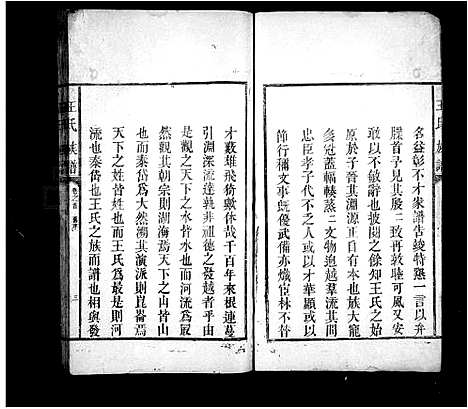 名益彰不才家譜告竣特懇一言以弁
牒首予見其殷二致再敦睦可風又安
可以不敏辭也披閱之餘知王氏之始
原於子晉其淵源正自有本也族大寵
多冠蓋輻輳蒸二文物迨越羣流其間
忠臣孝子代不乏人或以才華顯或以
節行稱文事旣優武備亦熾宦林不啻
王氏族譜
才藪雄飛猗歟休哉千百年來根連蔓
引淵深流達孰非祖德之發越者乎由
是觀之天下之水皆水也而河流爲最
然觀其朝宗則湖海爲天下之山皆山
也而泰岱爲大然溯其演派則崑崙焉
天下之姓皆姓也而王氏爲最是則河
流也泰岱也王氏之族而譜也相與發
王氏族譜
卷之首
三